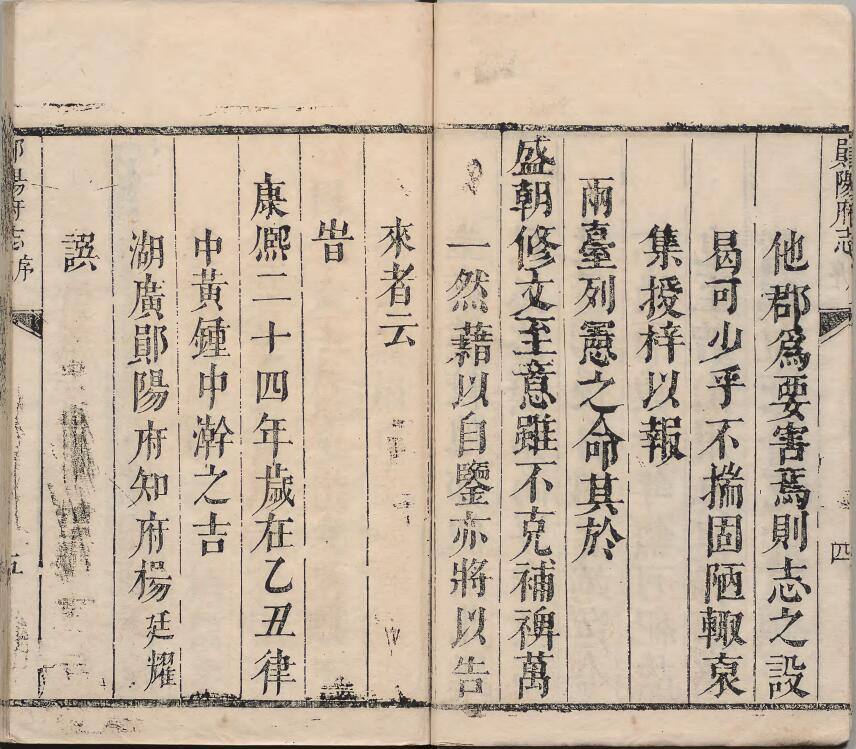 鄖陽府志
四
他郡爲要害焉則志之設
曷可少乎不揣固陋輙裒
集授梓以報
兩臺列憲之命其於
盛朝修文至意雖不克補裨萬
一然藉以自鑒亦將以告
來者云
旹
康熈二十四年歲在乙丑律
中黃鍾中澣之吉
湖廣鄖陽府知府楊廷耀
譔
鄖陽府志
序
五